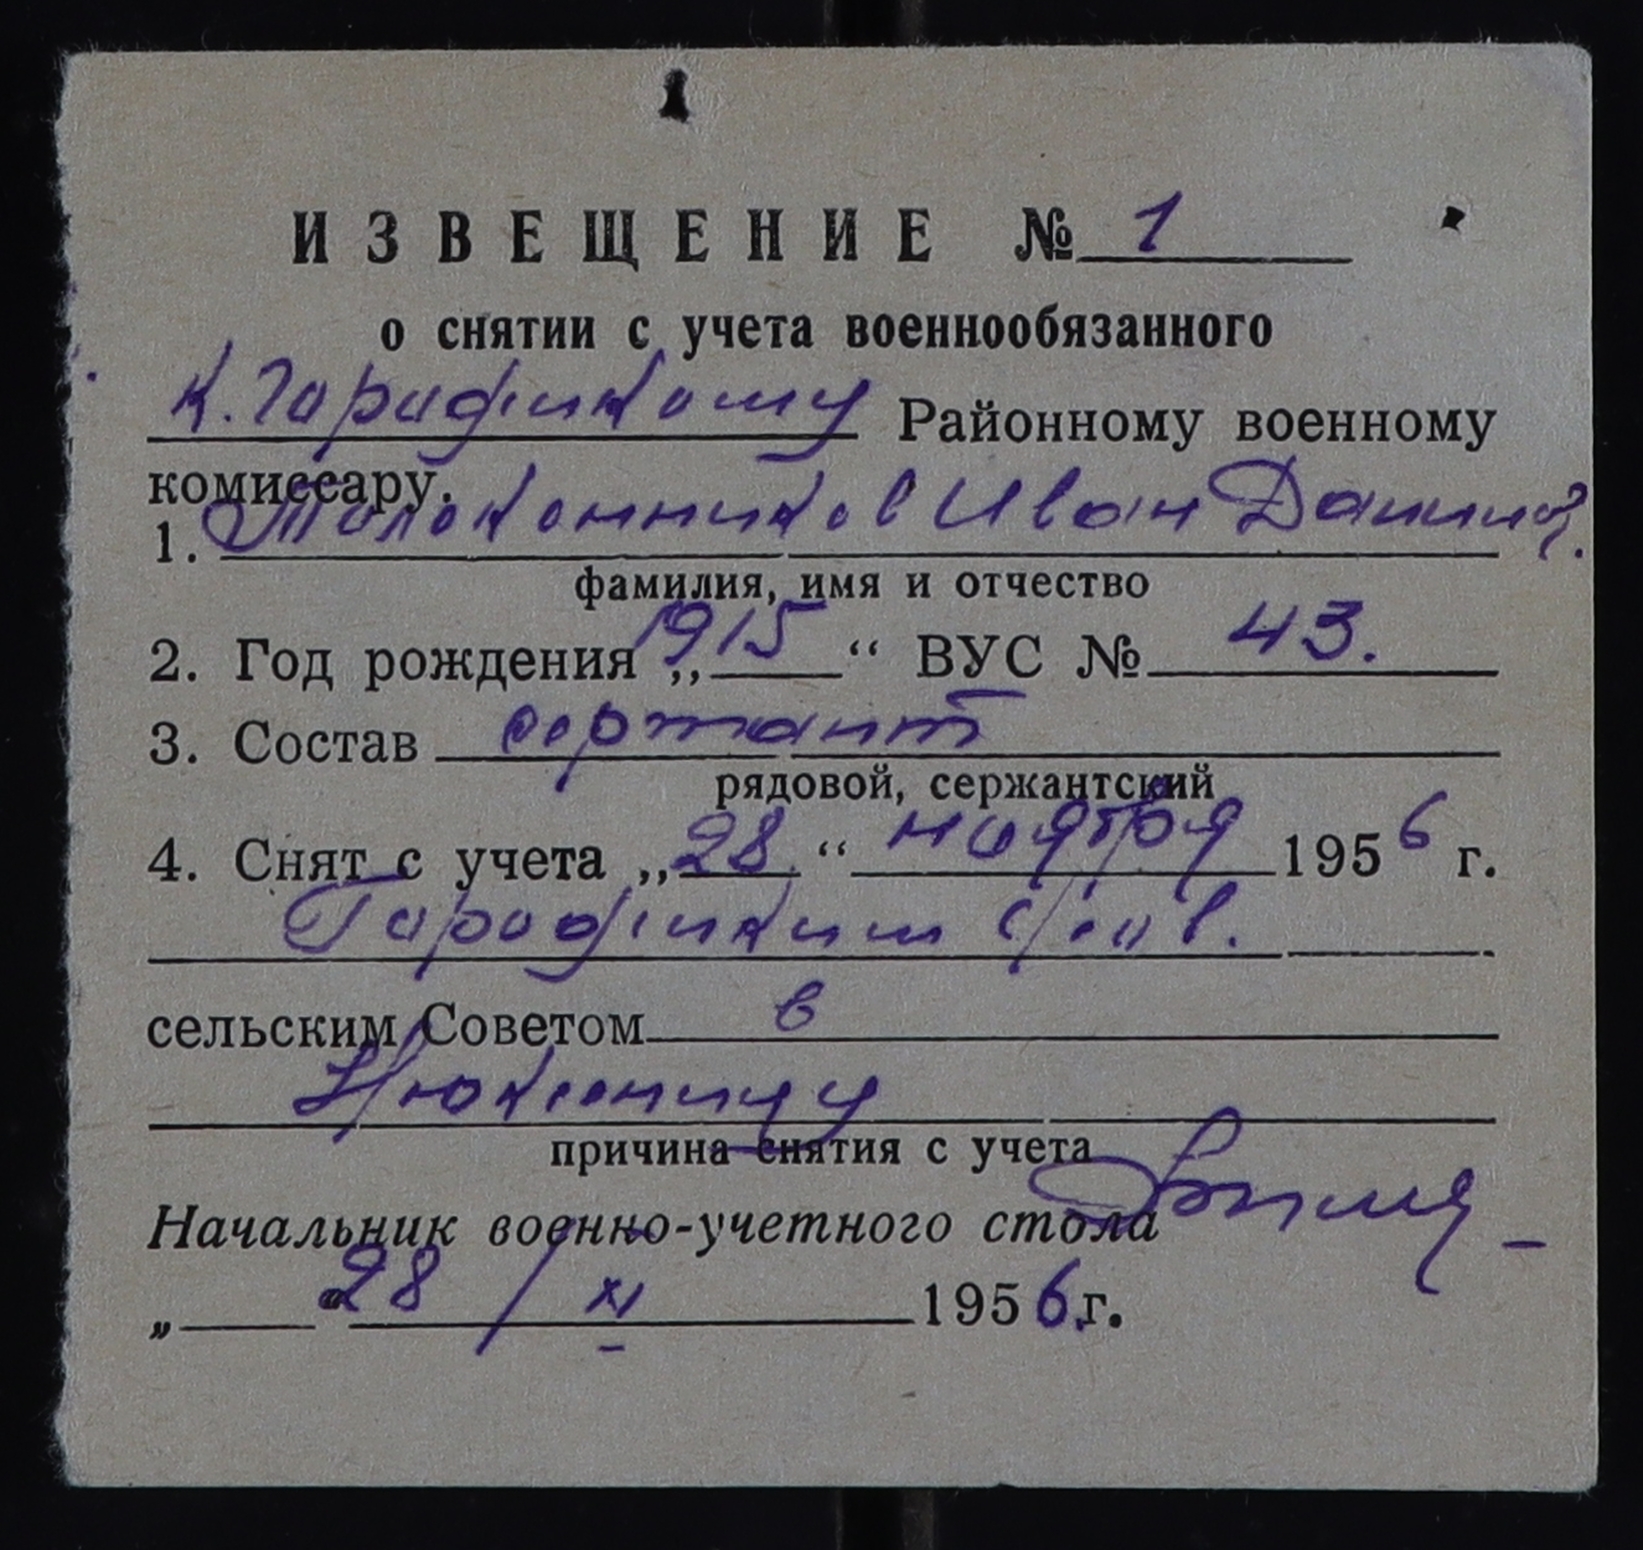 ИЗВЕЩЕНИЕ № 1
о снятии с учета военнообязанного
К. Городецкому Районному военному
комиссару.
1. Толоконников Иван Данил.
фамилия, имя и отчество
2. Год рождения „1915“ ВУС № 43.
3. Состав сержант
рядовой, сержантский
4. Снят с учета „28“ ноября 1956 г.
Городецким
сельским Советом в
Нюксеницу
причина снятия с учета
Начальник военно-учетного стола
„ “ 28/XI 1956 г.